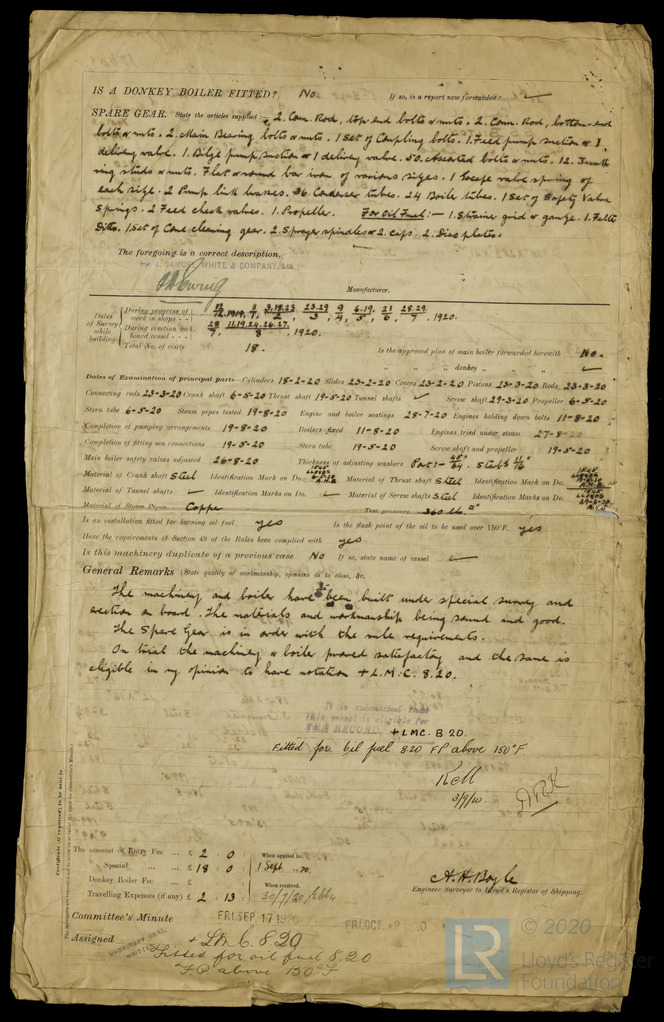 IS A DONKEY BOILER FITTED? No. If so, is a report now forwarded?
SPARE GEAR. State the articles supplied:— 2. Con. Rod, top-end bolts & nuts. 2. Conn. Rod, bottom-end
bolts & nuts. 2. Main Bearing bolts & nuts. 1 Set of Coupling bolts. 1. Feed pump suction & 1.
delivery valve. 1. Bilge pump suction & 1 delivery valve. 50. Assorted bolts & nuts. 12. Junk
ring studs & nuts. Flat & round bar iron of various sizes. 1 Escape valve spring of
each size. 2 Pump link brasses. 36 Condenser tubes. 24 Boiler tubes. 1 Set of Safety Valve
Springs. 2 Feed check valves. 1. Propeller. For Oil Fuel:— 1. Strainer grid & gauge. 1. Filter
Ditto. 1 Set of Cone cleaning gear. 2 Sprayer spindles & 2 caps. 2. Disc plates.
The foregoing is a correct description,
J. SAMUEL WHITE & COMPANY, LTD.
Manufacturer.
Dates of Survey while building
During progress of work in shops - - 1920.
During erection on board vessel - - - 1920.
Total No. of visits 18.
Is the approved plan of main boiler forwarded herewith No.
" " " donkey " " "
Dates of Examination of principal parts—Cylinders 18-2-20 Slides 23-2-20 Covers 23-2-20 Pistons 23-3-20 Rods 23-3-20
Connecting rods 23-3-20 Crank shaft 6-5-20 Thrust shaft 19-5-20 Tunnel shafts Screw shaft 29-3-20 Propeller 6-5-20
Stern tube 6-5-20 Steam pipes tested 19-8-20 Engine and boiler seatings 28-7-20 Engines holding down bolts 11-8-20
Completion of pumping arrangements 19-8-20 Boilers fixed 11-8-20 Engines tried under steam 27-8-20
Completion of fitting sea connections 19-5-20 Stern tube 19-5-20 Screw shaft and propeller 19-5-20
Main boiler safety valves adjusted 26-8-20 Thickness of adjusting washers Port 45/64" Starbd 11/16"
Material of Crank shaft Steel Identification Mark on Do. Material of Thrust shaft Steel Identification Mark on Do.
Material of Tunnel shafts Identification Marks on Do. Material of Screw shafts Steel Identification Marks on Do.
Material of Steam Pipes Copper Test pressure 360 lbs
Is an installation fitted for burning oil fuel yes Is the flash point of the oil to be used over 150°F. yes
Have the requirements of Section 49 of the Rules been complied with yes
Is this machinery duplicate of a previous case No If so, state name of vessel
General Remarks (State quality of workmanship, opinions as to class, &c.
The machinery and boiler have been built under special survey and
erection on board. The materials and workmanship being sound and good.
The Spare Gear is in order with the rule requirements.
On trial the machinery & boiler proved satisfactory and the same is
eligible in my opinion to have notation + L.M.C. 8.20.
It is submitted that
this vessel is eligible for
THE RECORD. + LMC. 8 20.
Fitted for oil fuel 8.20 FP above 150°F
3/9/20.
Certificate (if required) to be sent to
The amount of Entry Fee ... £ 2 : 0 When applied for,
Special ... £ 18 : 0 1 Sept 1920.
Donkey Boiler Fee ... £ When received,
Travelling Expenses (if any) £ 2 : 13 30/9/20
A. H. Boyle
Engineer Surveyor to Lloyd's Register of Shipping.
Committee's Minute FRI. SEP. 17 1920 FRI. OCT
Assigned + LMC. 8.20
MACHINERY CERT. WRITTEN
Fitted for oil fuel 8.20
F.P. above 150°F
© 2020
LR Lloyd's Register
Foundation